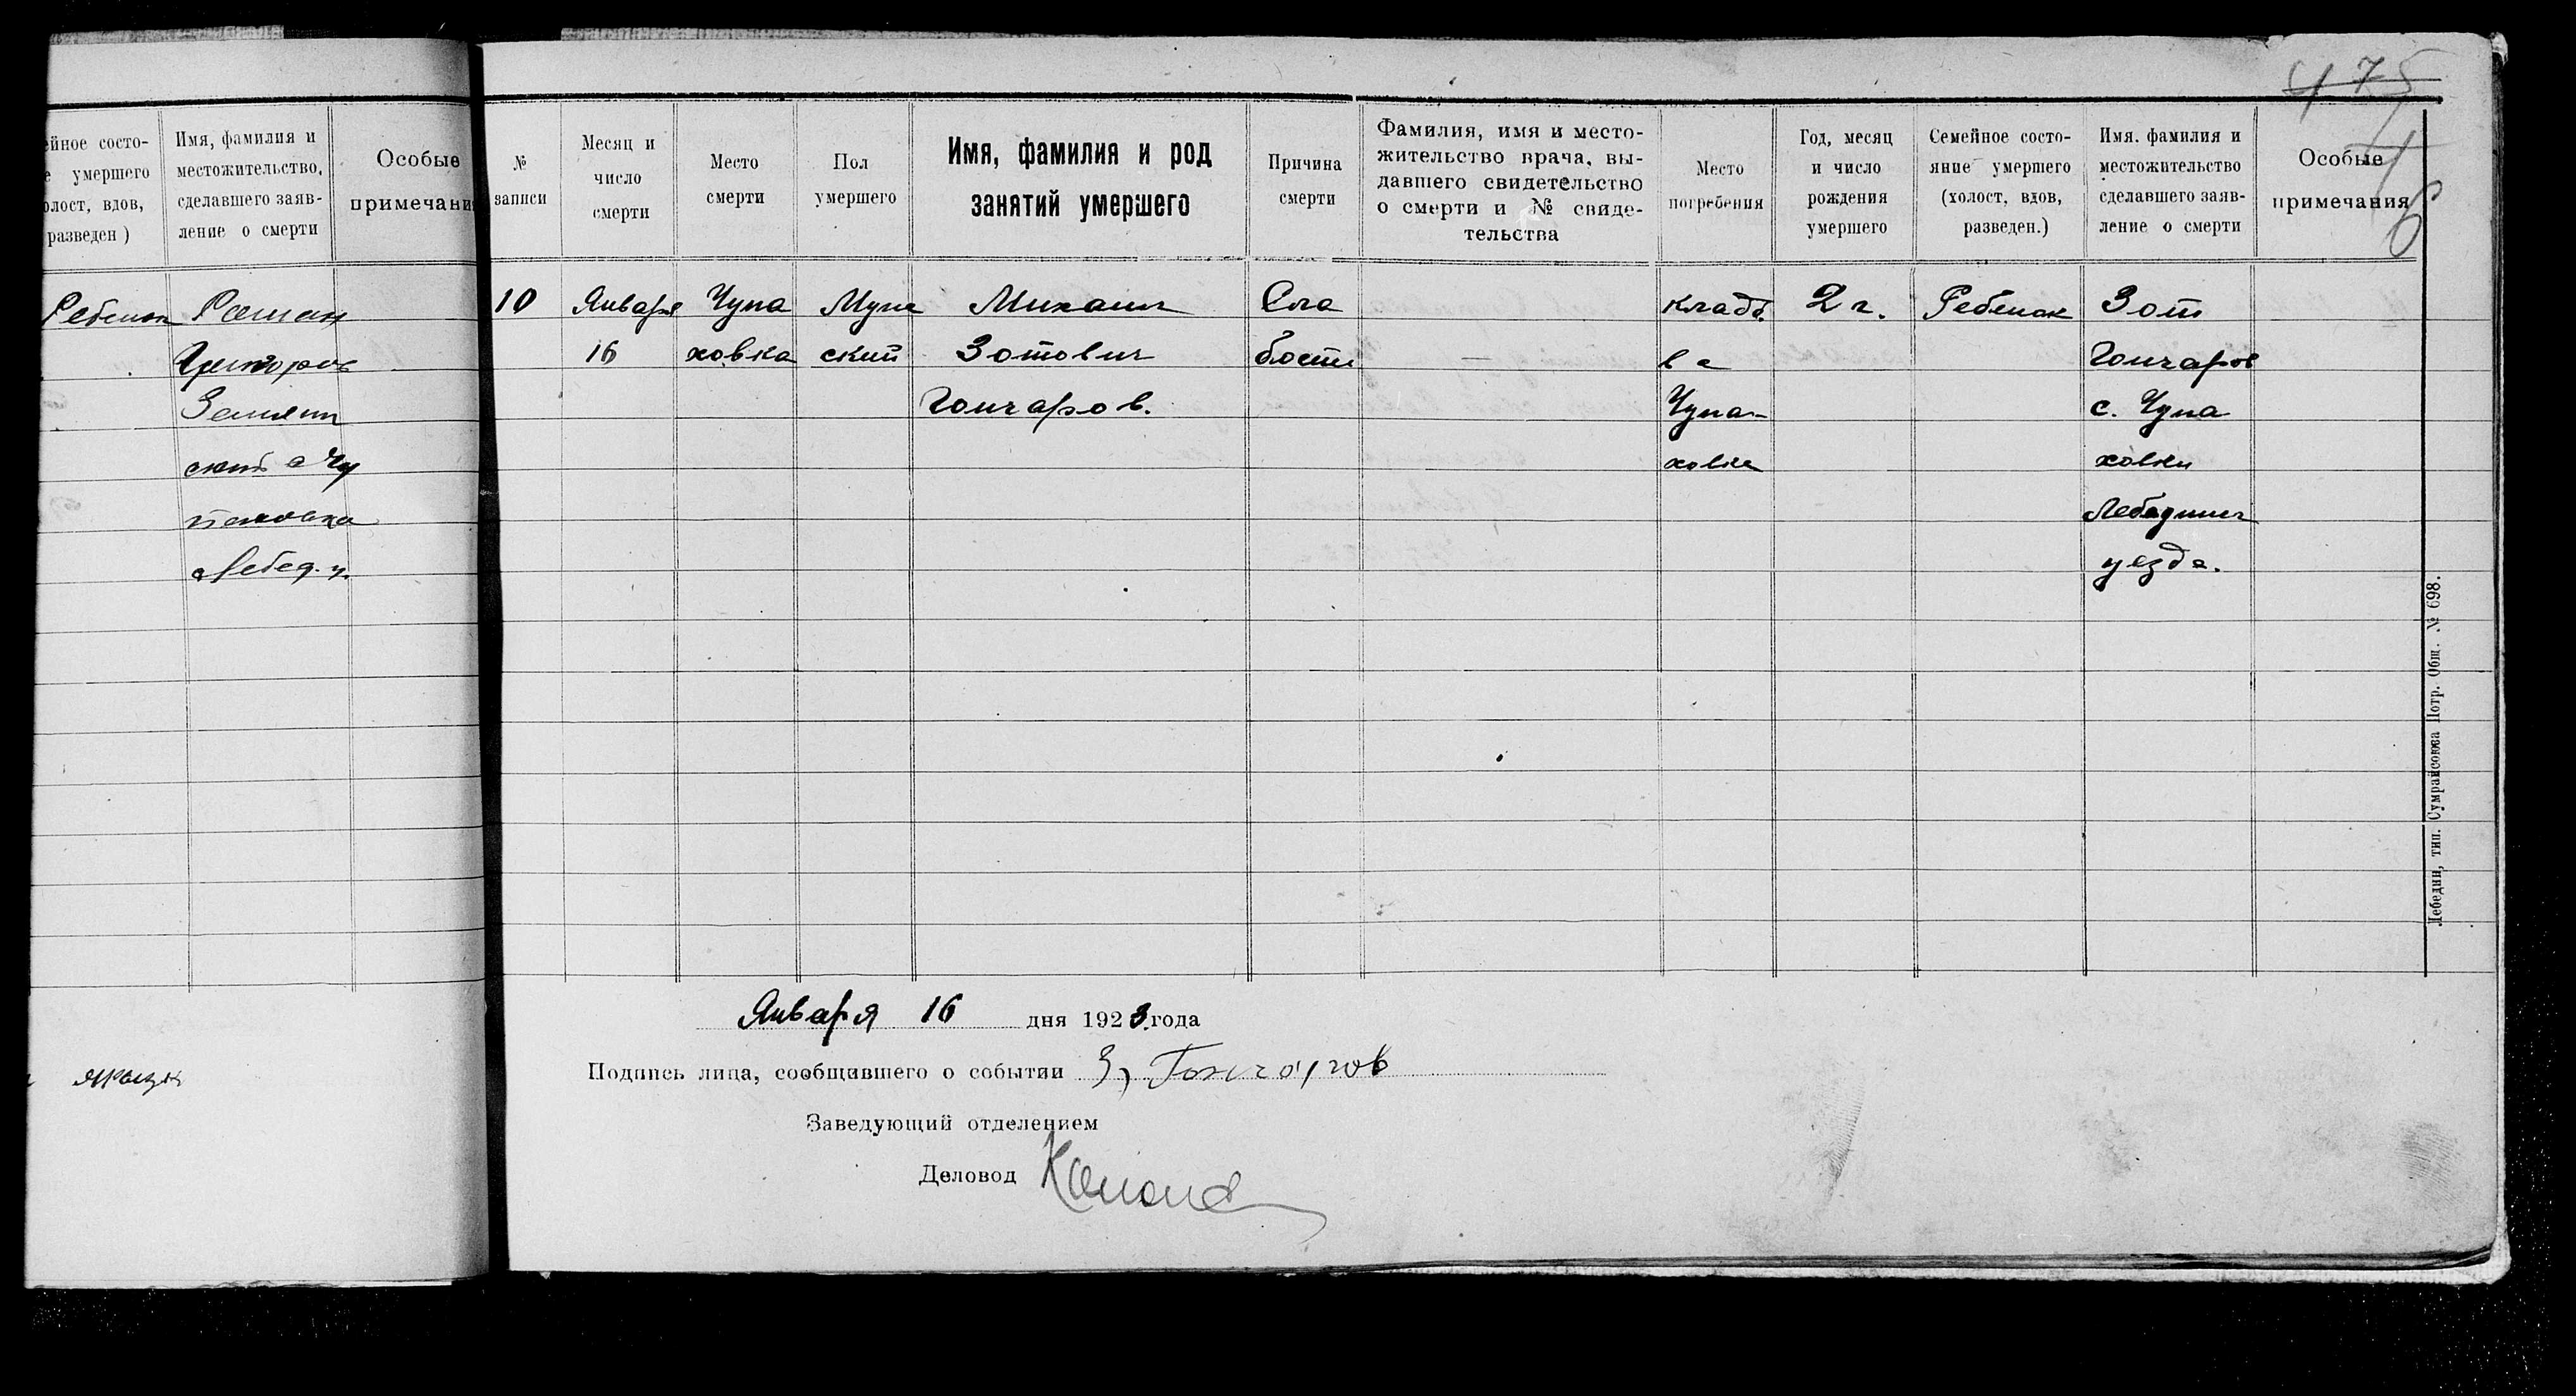 475
6
ейное состо-
е умершего
олост, вдов,
разведен)
Имя, фамилия и
местожительство,
сделавшего заяв-
ление о смерти
Особые
примечани
Ребенок
Роман
Григоров
ский с Чу
паховка
Лебед. у.
№
записи
Месяц и
число
смерти
Место
смерти
Пол
умершего
Имя, фамилия и род
занятий умершего
Причина
смерти
Фамилия, имя и место-
жительство врача, вы-
давшего свидетельство
о смерти и № свиде-
тельства
Место
погребения
Год, месяц
и число
рождения
умершего
Семейное состо-
яние умершего
(холост, вдов,
разведен.)
Имя. фамилия и
местожительство
сделавшего заяв-
ление о смерти
Особые
примечания
10
Января
16
Чупа
ховка
Муж
ский
Михаил
Зотович
Гончаров.
Сла
бости
—
кладб.
в с
Чупа-
ховке
2 г.
Ребенок
Зот
Гончаров
с. Чупа
ховки
Лебединск
уезда.
Января 16 дня 1923 года
Подпись лица, сообщившего о событии З, Гончаров
Заведующий отделением
Деловод
Лебедин, тип. Сумрайсоюза Потр. Общ. № 698.